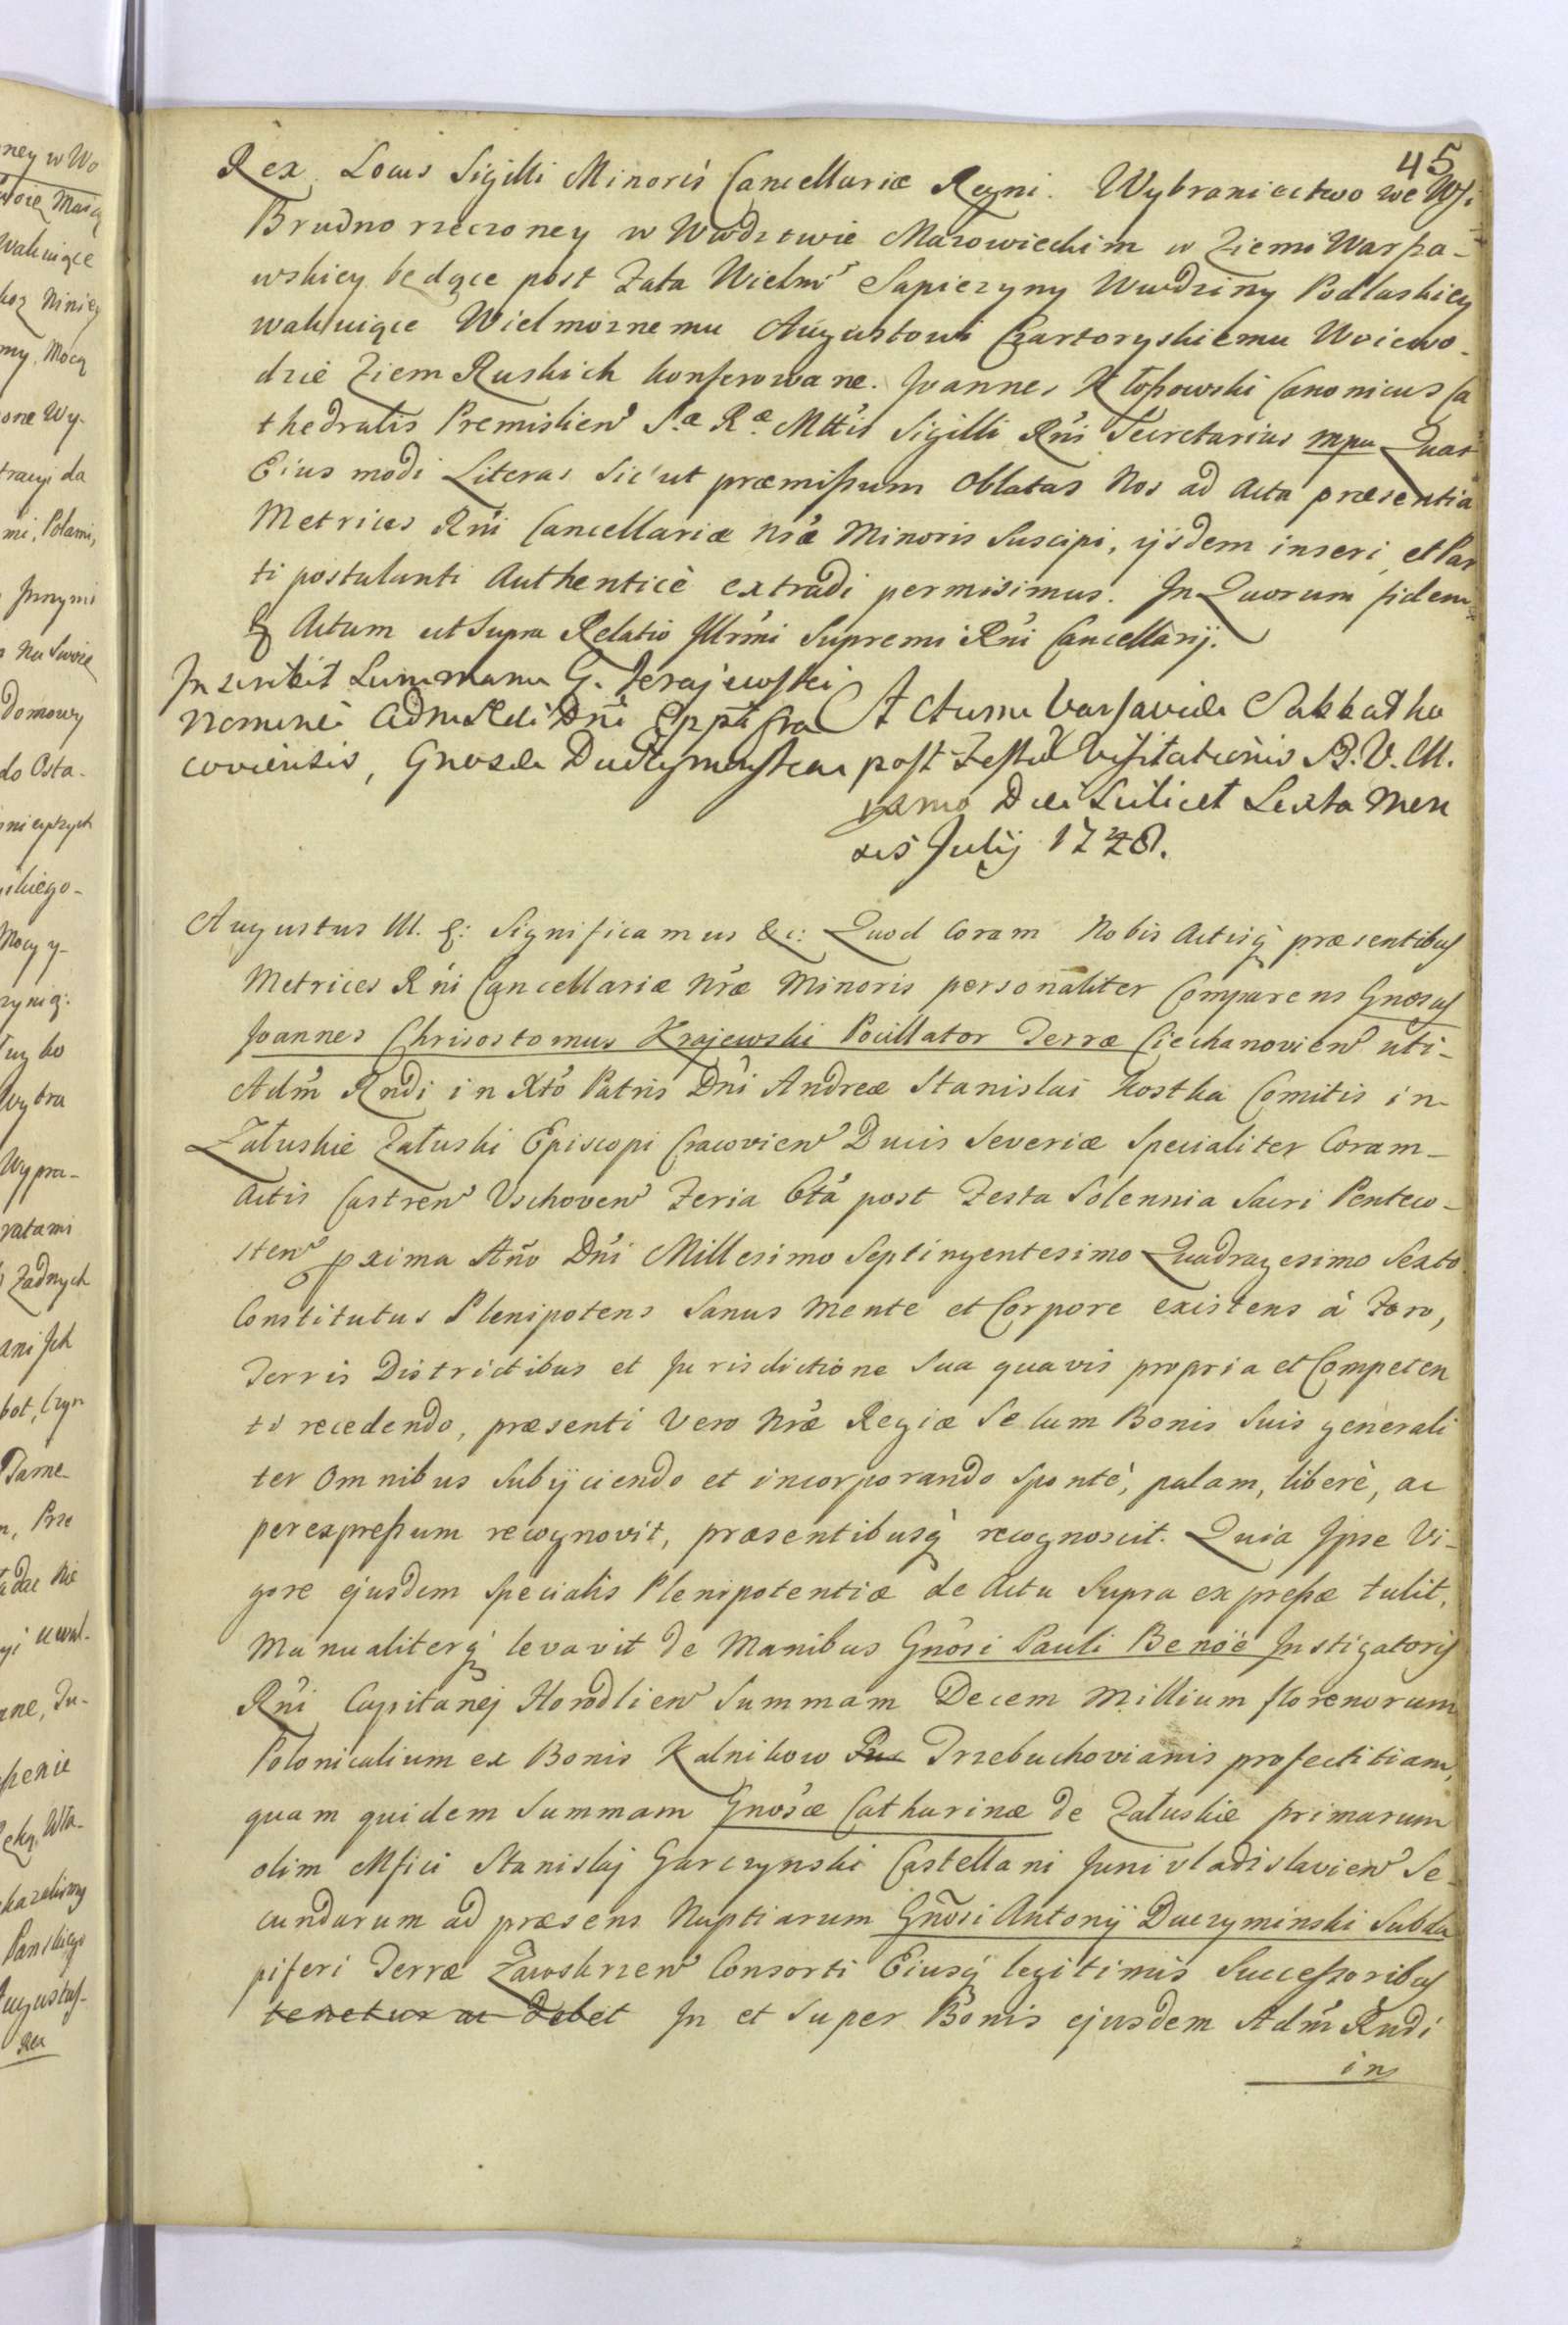 45
Rex. Locus Sigilli Minoris Cancellariæ Regni. Wybraniectwo we Wsi
Brudno rzeczoney w Wwdztwie Mazowieckim w Ziemi Warsza-
wskiey będące post Fata Wielmˢ Sapiezyny Wwdziny Podlaskiey
wakuiące Wielmoznemu Augustowi Czartoryskiemu Woiewo-
dzie Ziem Ruskich konferowane. Joannes Kłossowski Canonicus Ca
thedralis Premislienˢ S.æ R.æ Mttis Sigilli Rni Secretarius mpa Quas
Eius modi Literas sic ut præmissum Oblatas Nos ad Acta præsentia
Metrices Rni Cancellariæ Nræ Minoris Suscipi, ijsdem inseri, et Par
ti postulanti Authenticè extradi permisimus. In Quorum fidem
& Actum ut Supra Relatio Illrmi Supremi Rni Cancellarij.
Inscribit Summam G. Krajewski
Nomine Adm Rdi Dni Eppi Cra
coviensis, Gnosæ Duczyminska
Actum Varsaviæ Sabbatho
post Festū Visitationis B. V. M.
pxmo Die Scilicet Sexta Men
sis Julij 1748.
Augustus III. &: Significamus &c: Quod Coram Nobis Actisq præsentibus
Metrices Rni Cancellariæ Nræ Minoris personaliter Comparens Gnosus
Joannes Chrisostomus Krajewski Pocillator Terræ Ciechanovienˢ uti-
Adm Rndi in Xto Patris Dni Andreæ Stanislai Kostka Comitis in
Załuskie Załuski Episcopi Cracovienˢ Ducis Severiæ Specialiter Coram-
Actis Castrenˢ Vschovenˢ Feria 6tá post Festa Solennia Sacri Penteco-
stenˢ pxima Año Dni Millesimo Septingentesimo Quadragesimo Sexto
Constitutus Plenipotens Sanus Mente et Corpore existens à Foro,
Terris Districtibus et Jurisdictione Sua quavis propria et Competen
ti recedendo, præsenti Vero Nræ Regiæ Se Cum Bonis Suis generali
ter Omnibus Subijciendo et incorporando Sponté, palam, liberè, ac
perexpressum recognovit, præsentibusq recognoscit. Quia Ipse Vi-
gore ejusdem Specialis Plenipotentiæ de Actu Supra expressæ tulit,
Manualiterq levavit de Manibus Gnosi Pauli Benoë Instigatoris
Rni Capitanej Horodlienˢ Summam Decem Millium florenorum
Polonicalium ex Bonis Kalnikow Trzebuchovianis profectitiam,
quam quidem Summam Gnosæ Catharinæ de Załuskie primarum
olim Mfici Stanislaj Garczynski Castellani Junivladislavienˢ Se
cundarum ad præsens Nuptiarum Gnosi Antonij Duczyminski Subda
piferi Terræ Zawskrzenˢ Consorti Eiusq legitimis Successoribus
tenetur ac debet In et Super Bonis ejusdem Adm Rndi
in